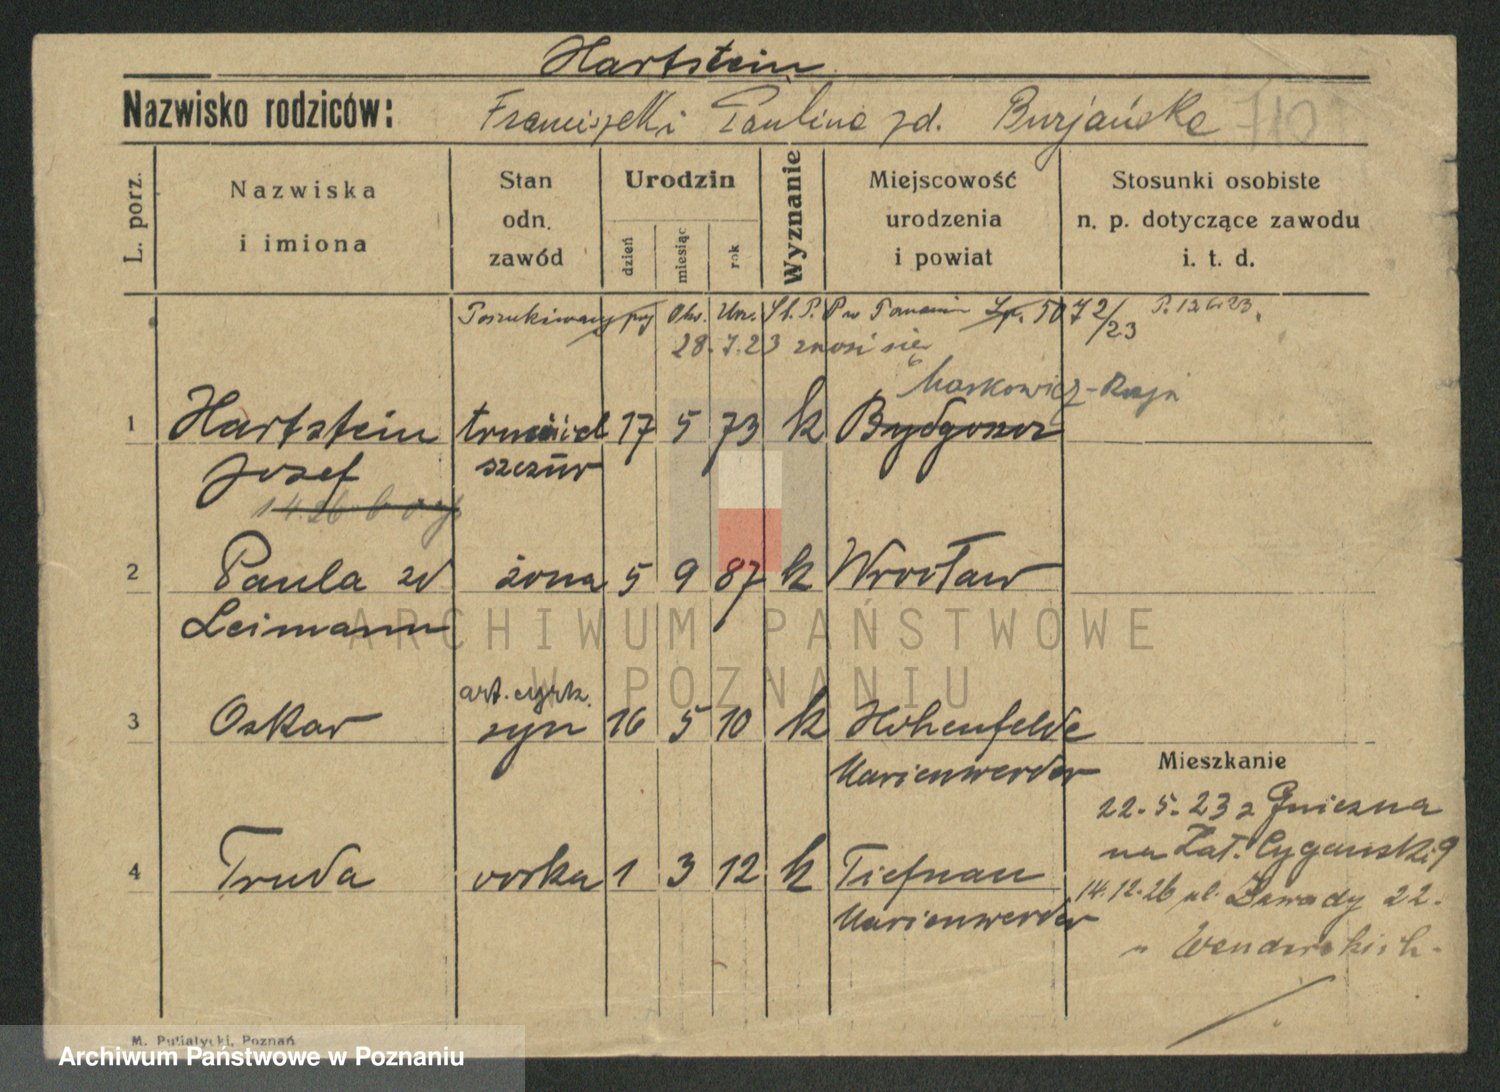 Hartstein
Nazwisko rodziców: Franciszek i Paulina zd. Burjańska 710
L. porz.
Nazwiska
i imiona
Stan
odn.
zawód
Urodzin
dzień
miesiąc
rok
Wyznanie
Miejscowość
urodzenia
i powiat
Stosunki osobiste
n. p. dotyczące zawodu
i. t. d.
Poszukiwany Okr. Urz. Śl. P. P w Poznaniu 5072/23 P. 12.6.23.
28.7.23 znosi się
1 Hartstein truciciel 17 5 73 k Bydgoszcz
Josef szczur
14.26
2 Paula zd żona 5 9 87 k Wrocław
Leimann
ARCHIWUM PAŃSTWOWE
W POZNANIU
art. cyrk.
3 Oskar syn 16 5 10 k Hohenfelde
Marienwerder
4 Truda corka 1 3 12 k Tiefnau
Marienwerder
Mieszkanie
22.5.23 z Gniezna
na Cygański 9
14.12.26 ul. Zawady 22.
u
M. Putiatycki, Poznań
Archiwum Państwowe w Poznaniu